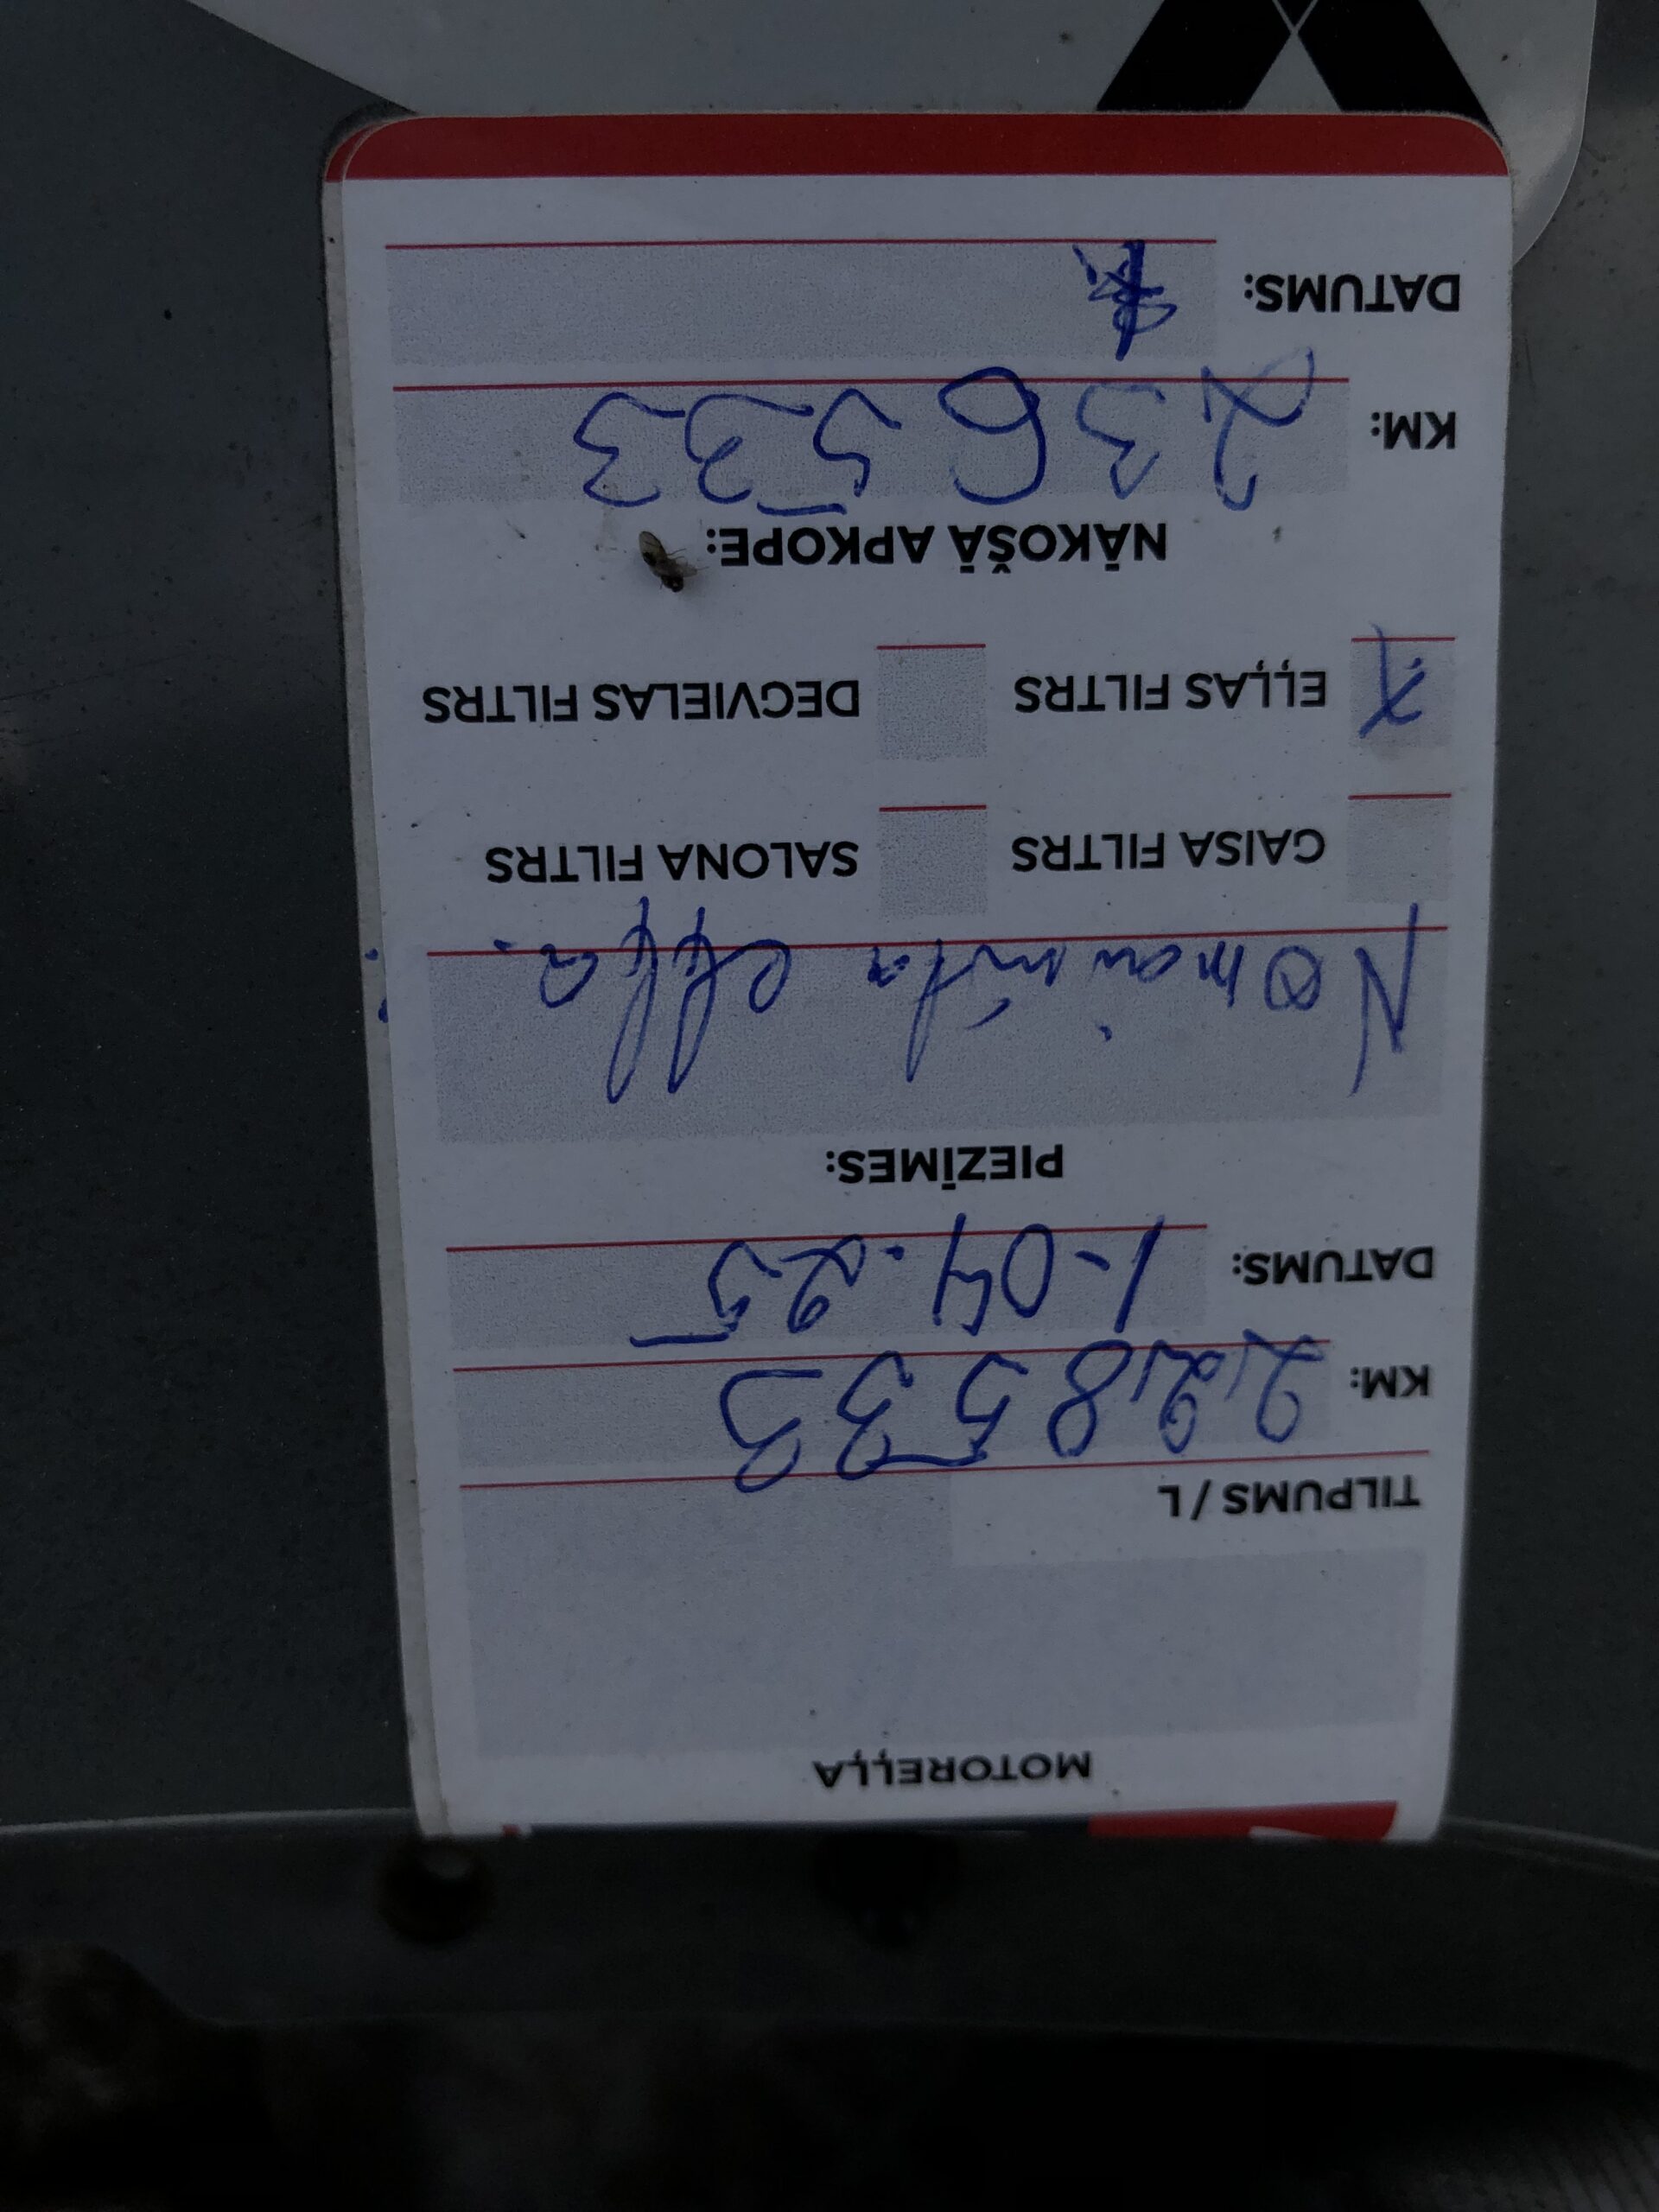 MOTOREĻĻA
TILPUMS / L
KM: 228533
DATUMS: 1-04.25
PIEZĪMES:
Nomainīta eļļa.
GAISA FILTRS SALONA FILTRS
X EĻĻAS FILTRS DEGVIELAS FILTRS
NĀKOŠĀ APKOPE:
KM: 236533
DATUMS: